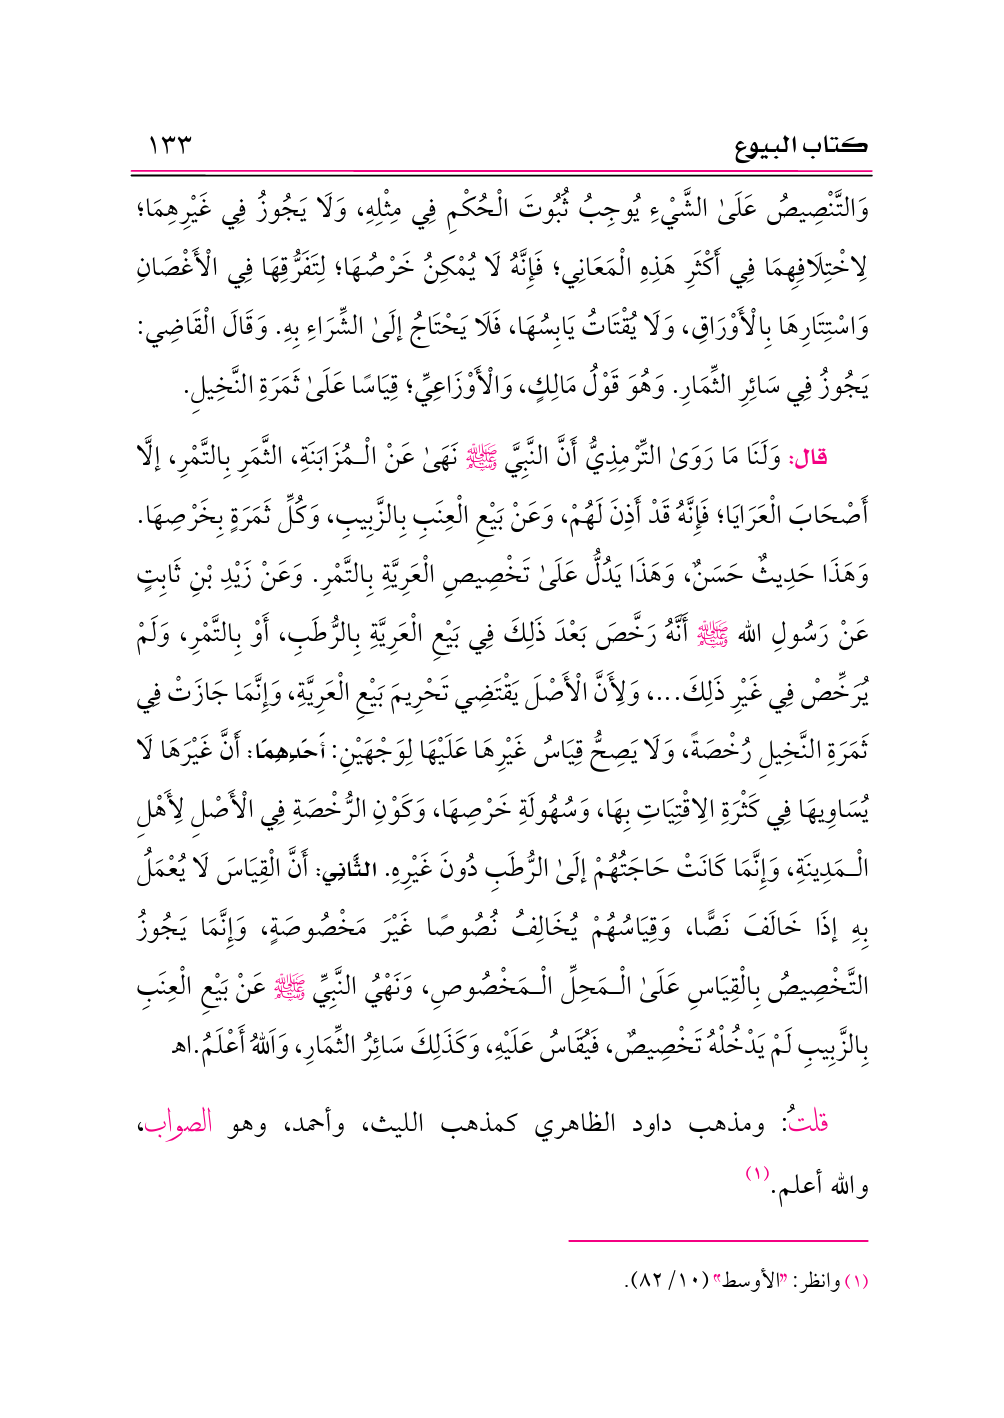 كتاب البيوع ١٣٣
وَالتَّنْصِيصُ عَلَىٰ الشَّيْءِ يُوجِبُ ثُبُوتَ الْحُكْمِ فِي مِثْلِهِ، وَلَا يَجُوزُ فِي غَيْرِهِمَا؛
لِاخْتِلَافِهِمَا فِي أَكْثَرِ هَذِهِ الْمَعَانِي؛ فَإِنَّهُ لَا يُمْكِنُ خَرْصُهَا؛ لِتَفَرُّقِهَا فِي الْأَغْصَانِ
وَاسْتِتَارِهَا بِالْأَوْرَاقِ، وَلَا يُقْتَاتُ يَابِسُهَا، فَلَا يَحْتَاجُ إلَىٰ الشِّرَاءِ بِهِ. وَقَالَ الْقَاضِي:
يَجُوزُ فِي سَائِرِ الثِّمَارِ. وَهُوَ قَوْلُ مَالِكٍ، وَالْأَوْزَاعِيِّ؛ قِيَاسًا عَلَىٰ ثَمَرَةِ النَّخِيلِ.
قال: وَلَنَا مَا رَوَىٰ التِّرْمِذِيُّ أَنَّ النَّبِيَّ ﷺ نَهَىٰ عَنْ الْـمُزَابَنَةِ، الثَّمَرِ بِالتَّمْرِ، إلَّا
أَصْحَابَ الْعَرَايَا؛ فَإِنَّهُ قَدْ أَذِنَ لَهُمْ، وَعَنْ بَيْعِ الْعِنَبِ بِالزَّبِيبِ، وَكُلِّ ثَمَرَةٍ بِخَرْصِهَا.
وَهَذَا حَدِيثٌ حَسَنٌ، وَهَذَا يَدُلُّ عَلَىٰ تَخْصِيصِ الْعَرِيَّةِ بِالتَّمْرِ. وَعَنْ زَيْدِ بْنِ ثَابِتٍ
عَنْ رَسُولِ الله ﷺ أَنَّهُ رَخَّصَ بَعْدَ ذَلِكَ فِي بَيْعِ الْعَرِيَّةِ بِالرُّطَبِ، أَوْ بِالتَّمْرِ، وَلَمْ
يُرَخِّصْ فِي غَيْرِ ذَلِكَ...، وَلِأَنَّ الْأَصْلَ يَقْتَضِي تَحْرِيمَ بَيْعِ الْعَرِيَّةِ، وَإِنَّمَا جَازَتْ فِي
ثَمَرَةِ النَّخِيلِ رُخْصَةً، وَلَا يَصِحُّ قِيَاسُ غَيْرِهَا عَلَيْهَا لِوَجْهَيْنِ: أَحَدِهِمَا: أَنَّ غَيْرَهَا لَا
يُسَاوِيهَا فِي كَثْرَةِ الِاقْتِيَاتِ بِهَا، وَسُهُولَةِ خَرْصِهَا، وَكَوْنِ الرُّخْصَةِ فِي الْأَصْلِ لِأَهْلِ
الْـمَدِينَةِ، وَإِنَّمَا كَانَتْ حَاجَتُهُمْ إلَىٰ الرُّطَبِ دُونَ غَيْرِهِ. الثَّانِي: أَنَّ الْقِيَاسَ لَا يُعْمَلُ
بِهِ إذَا خَالَفَ نَصًّا، وَقِيَاسُهُمْ يُخَالِفُ نُصُوصًا غَيْرَ مَخْصُوصَةٍ، وَإِنَّمَا يَجُوزُ
التَّخْصِيصُ بِالْقِيَاسِ عَلَىٰ الْـمَحِلِّ الْـمَخْصُوصِ، وَنَهْيُ النَّبِيِّ ﷺ عَنْ بَيْعِ الْعِنَبِ
بِالزَّبِيبِ لَمْ يَدْخُلْهُ تَخْصِيصٌ، فَيُقَاسُ عَلَيْهِ، وَكَذَلِكَ سَائِرُ الثِّمَارِ، وَاَللهُ أَعْلَمُ.اهـ
قلتُ: ومذهب داود الظاهري كمذهب الليث، وأحمد، وهو الصواب،
والله أعلم.(١)
(١) وانظر: "الأوسط" (١٠/ ٨٢).